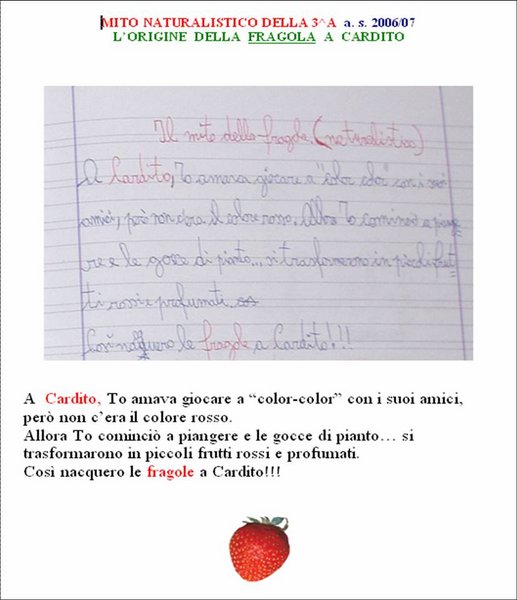 MITO NATURALISTICO DELLA 3^A a. s. 2006/07
L'ORIGINE DELLA FRAGOLA A CARDITO
Il mito della fragola. (naturalistico)
A Cardito, To amava giocare a "color color" con i suoi
amici, però non c'era il colore rosso. Allora To cominciò a pian
re e le gocce di pianto... si trasformarono in piccoli frut
ti rossi e profumati.
Così nacquero le fragole a Cardito!!!
A Cardito, To amava giocare a “color-color” con i suoi amici,
però non c’era il colore rosso.
Allora To cominciò a piangere e le gocce di pianto… si
trasformarono in piccoli frutti rossi e profumati.
Così nacquero le fragole a Cardito!!!